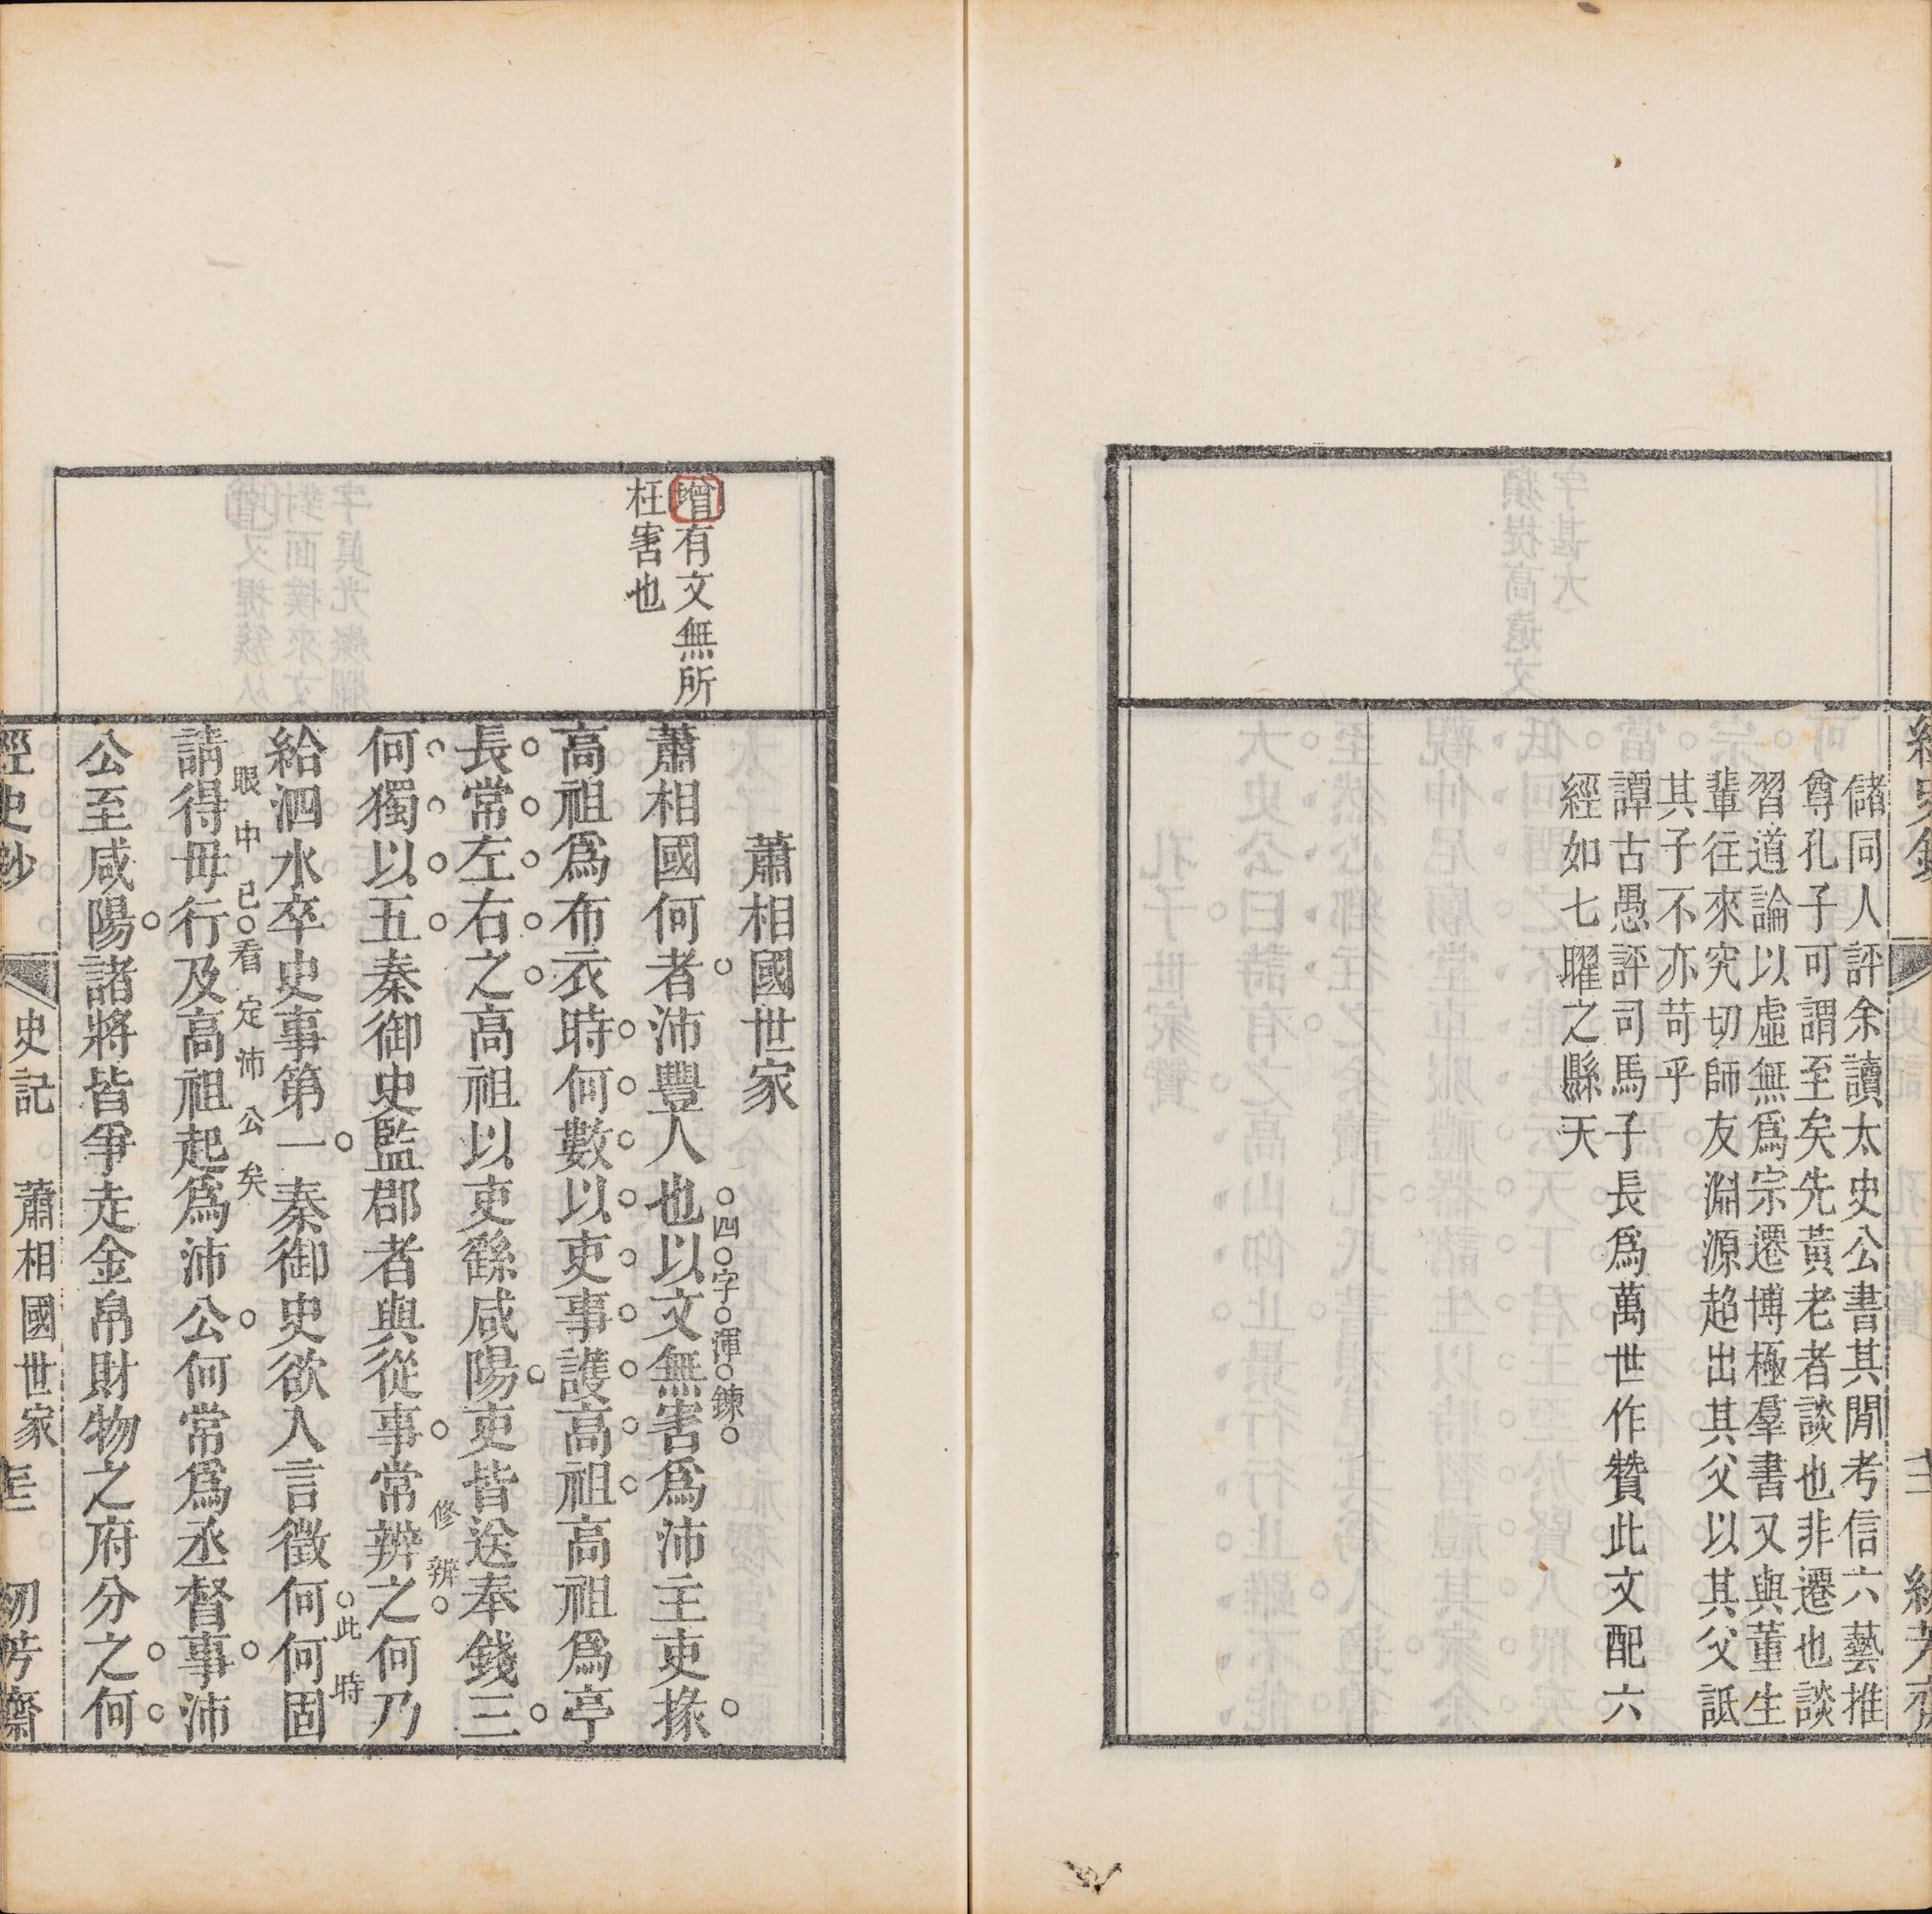 儲同人評余讀太史公書其閒考信六藝推
尊孔子可謂至矣先黃老者談也非遷也談
習道論以虛無爲宗遷博極羣書又與董生
輩往來究切師友淵源超出其父以其父詆
其子不亦苛乎
譚古愚評司馬子長爲萬世作贊此文配六
經如七曜之縣天
增有文無所
枉害也
蕭相國世家
蕭相國何者沛豐人也以文無害爲沛主吏掾
四字渾鍊
高祖爲布衣時何數以吏事護高祖高祖爲亭
長常左右之高祖以吏繇咸陽吏皆送奉錢三
何獨以五秦御史監郡者與從事常辨之何乃
修辨
給泗水卒史事第一秦御史欲入言徵何何固
此時
請得毋行及高祖起爲沛公何常爲丞督事沛
眼中已看定沛公矣
公至咸陽諸將皆爭走金帛財物之府分之何
經史鈔 史記 蕭相國世家 初芳齋